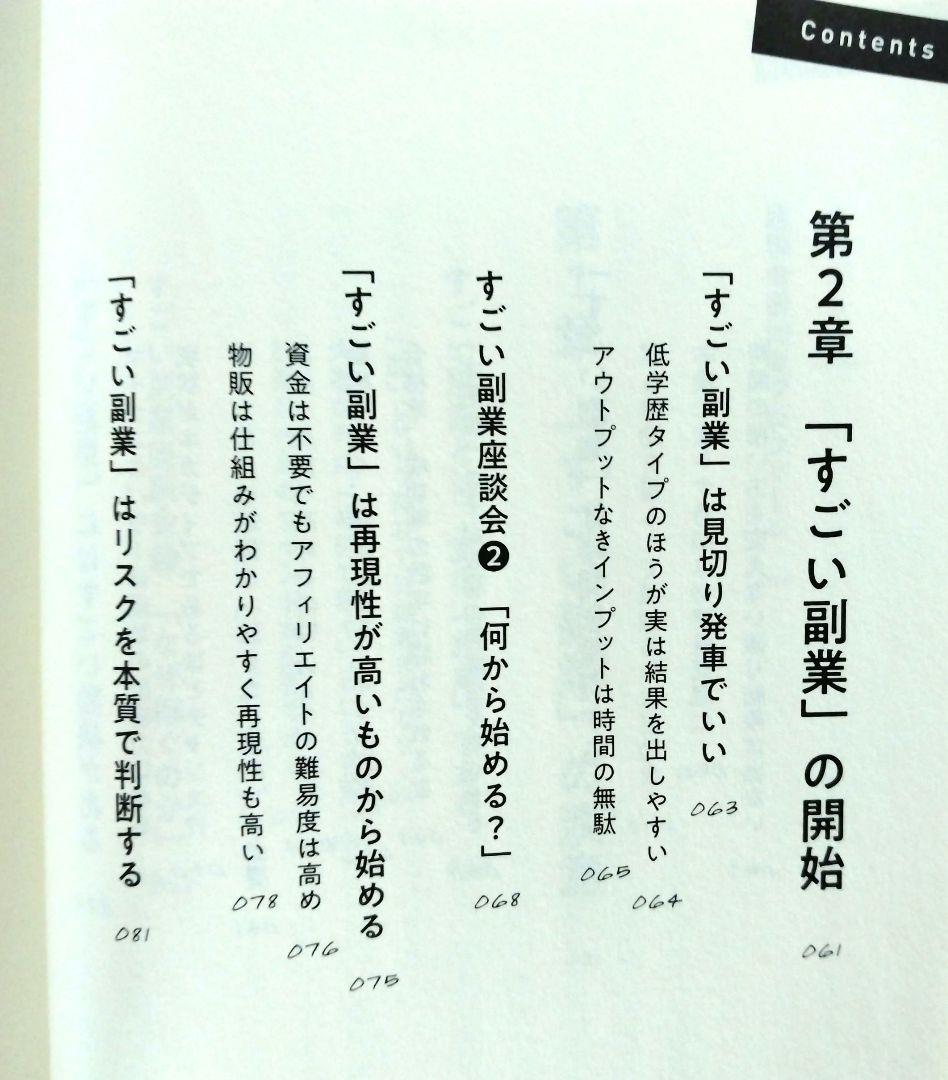 Contents
第2章 「すごい副業」の開始
061
「すごい副業」は見切り発車でいい
063
低学歴タイプのほうが実は結果を出しやすい
064
アウトプットなきインプットは時間の無駄
065
すごい副業座談会❷ 「何から始める?」
068
「すごい副業」は再現性が高いものから始める
075
資金は不要でもアフィリエイトの難易度は高め
076
物販は仕組みがわかりやすく再現性も高い
078
「すごい副業」はリスクを本質で判断する
081